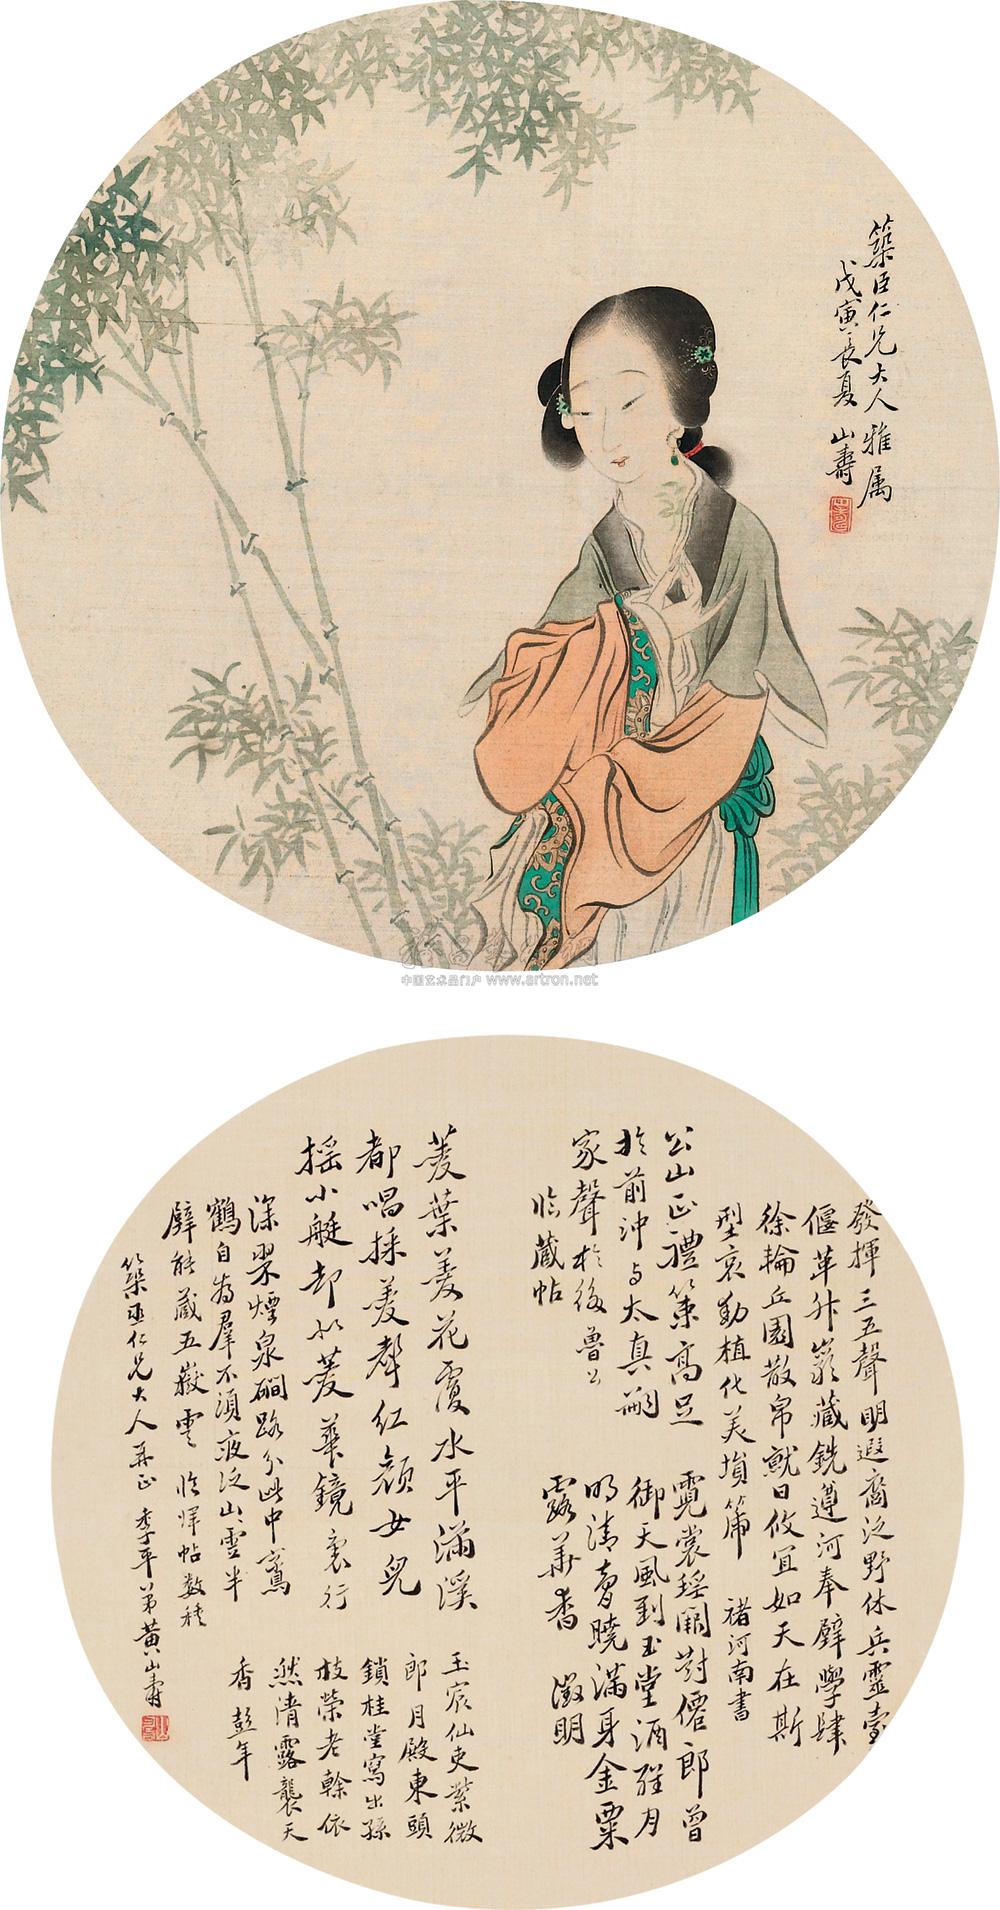 築臣仁兄大人雅属
戊寅長夏 山壽
中国艺术品门户 www.artron.net
發揮三五聲明遐裔泛野休兵靈臺
偃革升巖藏銑遵河奉璧學肆
徐輪丘園散帛就日攸宜如天在斯
型哀動植化美塤箎 褚河南書
公山正禮策高足
於前沖与太真嗣
家聲於後魯公
臨藏帖
霓裳瑤闕對僊郎曾
御天風到玉堂酒醒月
明清賞曉滿身金粟
露華香 澂明
菱葉羙花覆水平滿溪
都唱採菱聲紅顏女兒
摇小艇却从菱華鏡裏行
玉宸仙吏紫微
郎月殿東頭
鎖桂堂寫出孫
枝榮老榦依
然清露襲天
香 彭年
深翠煙泉磵路分此中鸞
鶴自為羣不須夜泛山雲半
壁能藏五嶽雲 臨惲帖数種
築臣仁兄大人再正 季平弟黄山壽